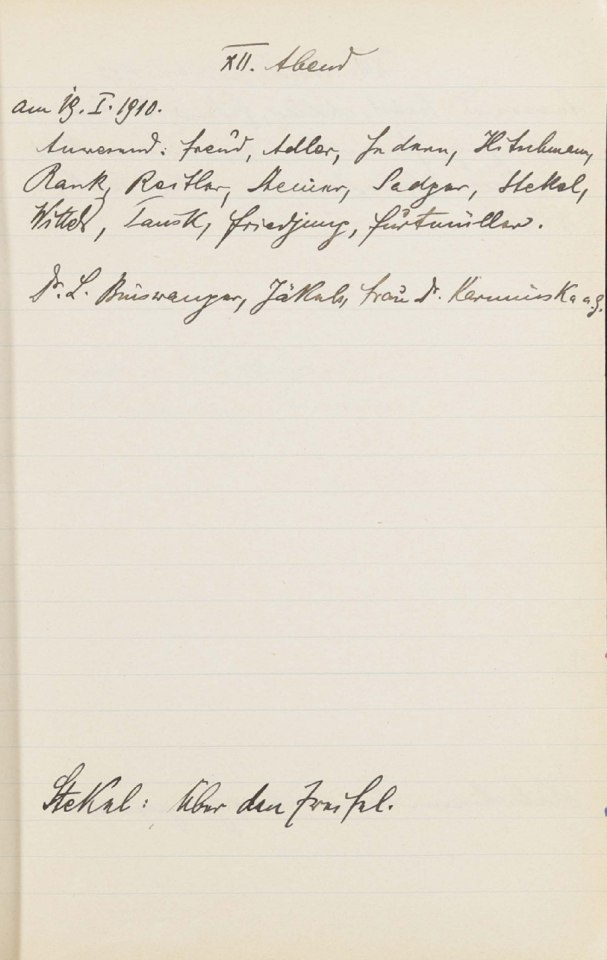 XII. Abend
am 19. I. 1910.
Anwesend: Freud, Adler, Federn, Hitschmann,
Rank, Reitler, Steiner, Sadger, Stekel,
Wittels, Tausk, Friedjung, Furtmüller.
Dr. L. Binswanger, Jekels, Frau Dr. Karminska a. G.
Stekel: Über den Zweifel.